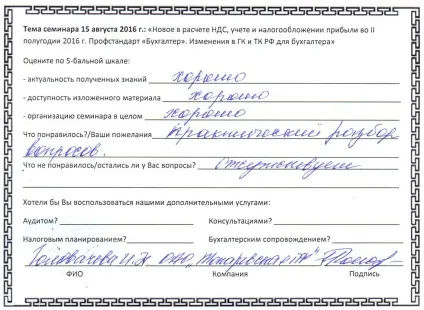 Тема семинара 15 августа 2016 г.: «Новое в расчете НДС, учете и налогообложении прибыли во II
полугодии 2016 г. Профстандарт «Бухгалтер». Изменения в ГК и ТК РФ для бухгалтера»
Оцените по 5-бальной шкале:
- актуальность полученных знаний хорошо
- доступность изложенного материала хорошо
- организацию семинара в целом хорошо
Что понравилось?/Ваши пожелания практический разбор
вопросов.
Что не понравилось/остались ли у Вас вопросы? отсутствуют
Хотели бы Вы воспользоваться нашими дополнительными услугами:
Аудитом? Консультациями?
Налоговым планированием? Бухгалтерским сопровождением?
Головачева И.Н. ОАО
ФИО Компания Подпись